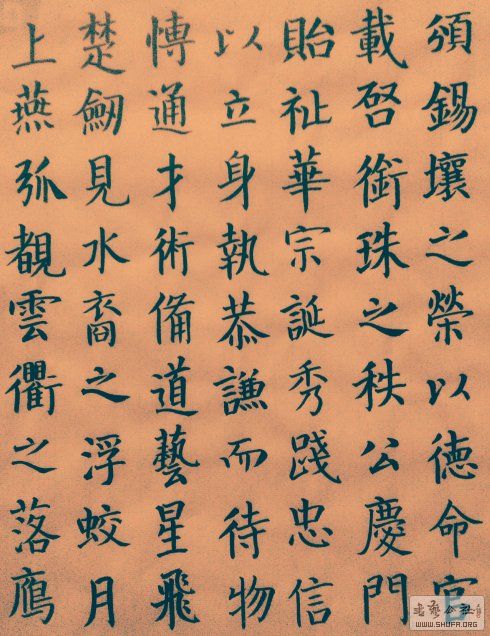 頒錫壤之榮以德命官
載啓銜珠之秩公慶門
貽祉華宗誕秀踐忠信
以立身執恭謙而待物
博通才術備道藝星飛
楚劒見水裔之浮蛟月
上燕弧覩雲衢之落鴈
WWW.SHUFA.ORG